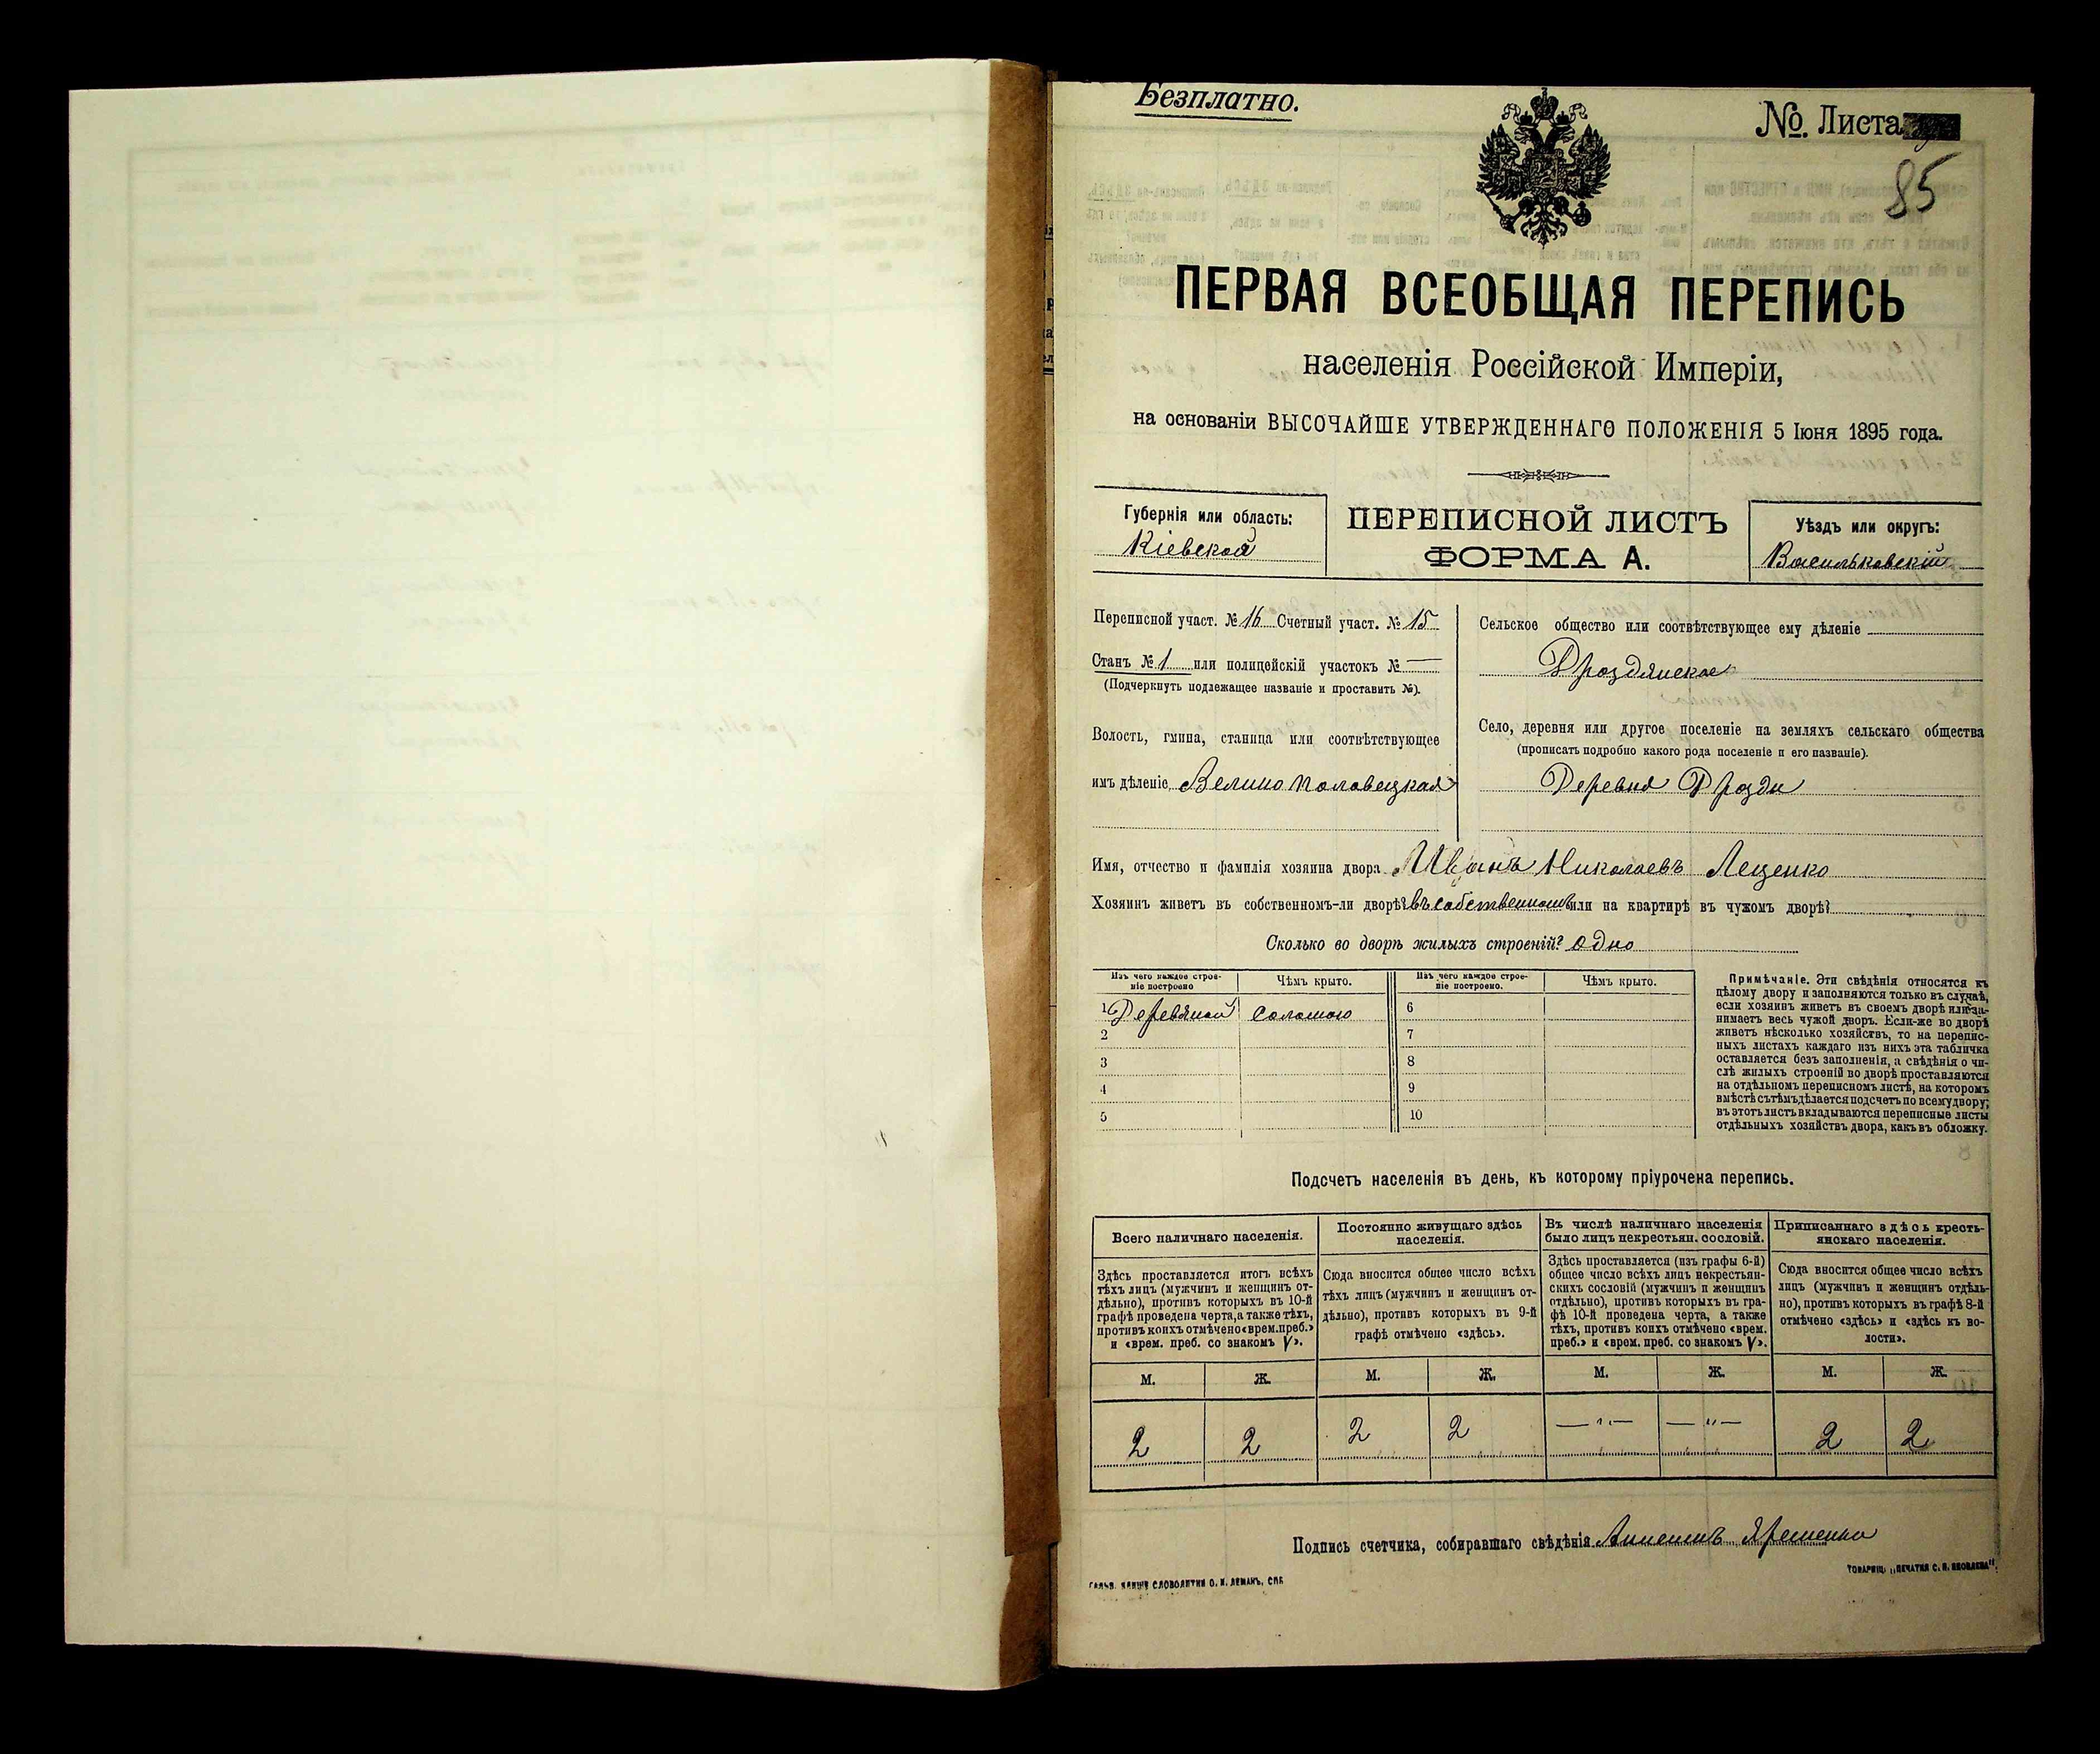 Безплатно.
№. Листа
85
ПЕРВАЯ ВСЕОБЩАЯ ПЕРЕПИСЬ
населенія Россійской Имперіи,
на основаніи ВЫСОЧАЙШЕ УТВЕРЖДЕННАГО ПОЛОЖЕНІЯ 5 Іюня 1895 года.
Губернія или область:
Кіевской
ПЕРЕПИСНОЙ ЛИСТЪ
ФОРМА А.
Уѣздъ или округъ:
Васильковскій
Переписной участ. № 16 Счетный участ. № 15
Станъ № 1 или полицейскій участокъ № —
(Подчеркнуть подлежащее названіе и проставить №).
Волость, гмина, станица или соотвѣтствующее
имъ дѣленіе Велико Половецкая
Сельское общество или соотвѣтствующее ему дѣленіе
Дроздянское
Село, деревня или другое поселеніе на земляхъ сельскаго общества
(прописать подробно какого рода поселеніе и его названіе).
Деревня Дрозди
Имя, отчество и фамилія хозяина двора Иванъ Николаевъ Лещенко
Хозяинъ живетъ въ собственномъ-ли дворѣ? въ собственномъ или на квартирѣ въ чужомъ дворѣ?
Сколько во дворѣ жилыхъ строеній? одно
Изъ чего каждое строе-
ніе построено
Чѣмъ крыто.
Изъ чего каждое строе-
ніе построено.
Чѣмъ крыто.
1 Деревяной соломою 6
2 7
3 8
4 9
5 10
Примѣчаніе. Эти свѣдѣнія относятся къ
цѣлому двору и заполняются только въ случаѣ,
если хозяинъ живетъ въ своемъ дворѣ или за-
нимаетъ весь чужой дворъ. Если-же во дворѣ
живетъ нѣсколько хозяйствъ, то на перепис-
ныхъ листахъ каждаго изъ нихъ эта табличка
оставляется безъ заполненія, а свѣдѣнія о чи-
слѣ жилыхъ строеній во дворѣ проставляются
на отдѣльномъ переписномъ листѣ, на которомъ
вмѣстѣ съ тѣмъ дѣлается подсчетъ по всему двору;
въ этотъ листъ вкладываются переписные листы
отдѣльныхъ хозяйствъ двора, какъ въ обложку.
Подсчетъ населенія въ день, къ которому пріурочена перепись.
Всего наличнаго населенія.
Здѣсь проставляется итогъ всѣхъ
тѣхъ лицъ (мужчинъ и женщинъ от-
дѣльно), противъ которыхъ въ 10-й
графѣ проведена черта, а также тѣхъ,
противъ коихъ отмѣчено «врем. преб.»
и «врем. преб. со знакомъ V».
Постоянно живущаго здѣсь
населенія.
Сюда вносится общее число всѣхъ
тѣхъ лицъ (мужчинъ и женщинъ от-
дѣльно), противъ которыхъ въ 9-й
графѣ отмѣчено «здѣсь».
Въ числѣ наличнаго населенія
было лицъ некрестьян. сословій.
Здѣсь проставляется (изъ графы 6-й)
общее число всѣхъ лицъ некрестьян-
скихъ сословій (мужчинъ и женщинъ
отдѣльно), противъ которыхъ въ гра-
фѣ 10-й проведена черта, а также
тѣхъ, противъ коихъ отмѣчено «врем.
преб.» и «врем. преб. со знакомъ V».
Приписаннаго здѣсь кресть-
янскаго населенія.
Сюда вносится общее число всѣхъ
лицъ (мужчинъ и женщинъ отдѣль-
но), противъ которыхъ въ графѣ 8-й
отмѣчено «здѣсь» и «здѣсь къ во-
лости».
М. Ж. М. Ж. М. Ж. М. Ж.
2 2 2 2 — " — — " — 2 2
Подпись счетчика, собиравшаго свѣдѣнія
СЛОВОЛИТНИ О. И. ЛЕМАНЪ, СПБ
ТОВАРИЩ. „ПЕЧАТНЯ С. П. ЯКОВЛЕВА"